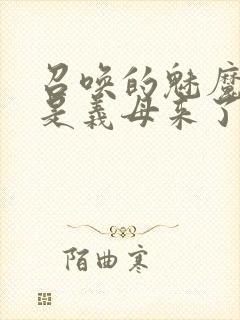 召唤的魅魔
是义母来了
陌曲寒